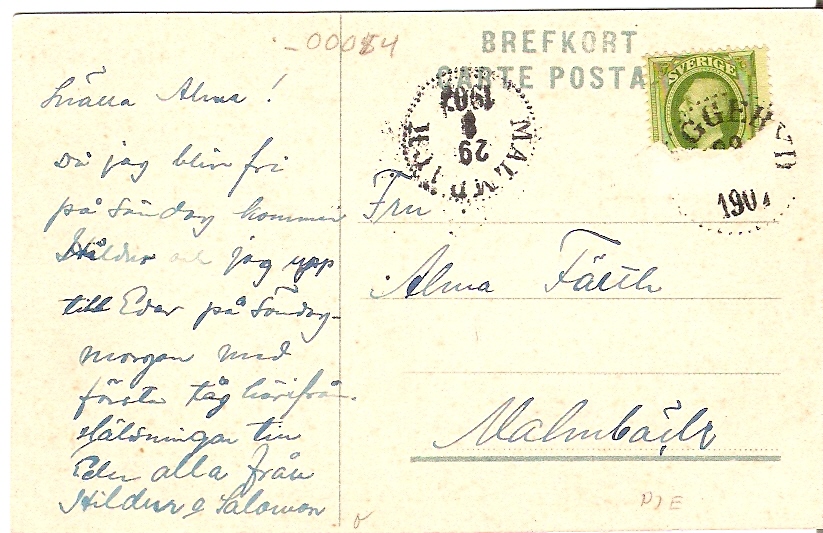 -00054
BREFKORT
CARTE POSTA
SVERIGE
GGER D
1907
MALMBÄCK
29
8
1907
Snälla Alma!
Då jag blir fri
på Söndag kommer
Hildur och jag upp
till Eder på Söndag-
morgon med
första tåg härifrån.
Hälsningar till
Eder alla från
Hildur & Salomon
Fru
Alma Färth
Malmbäck